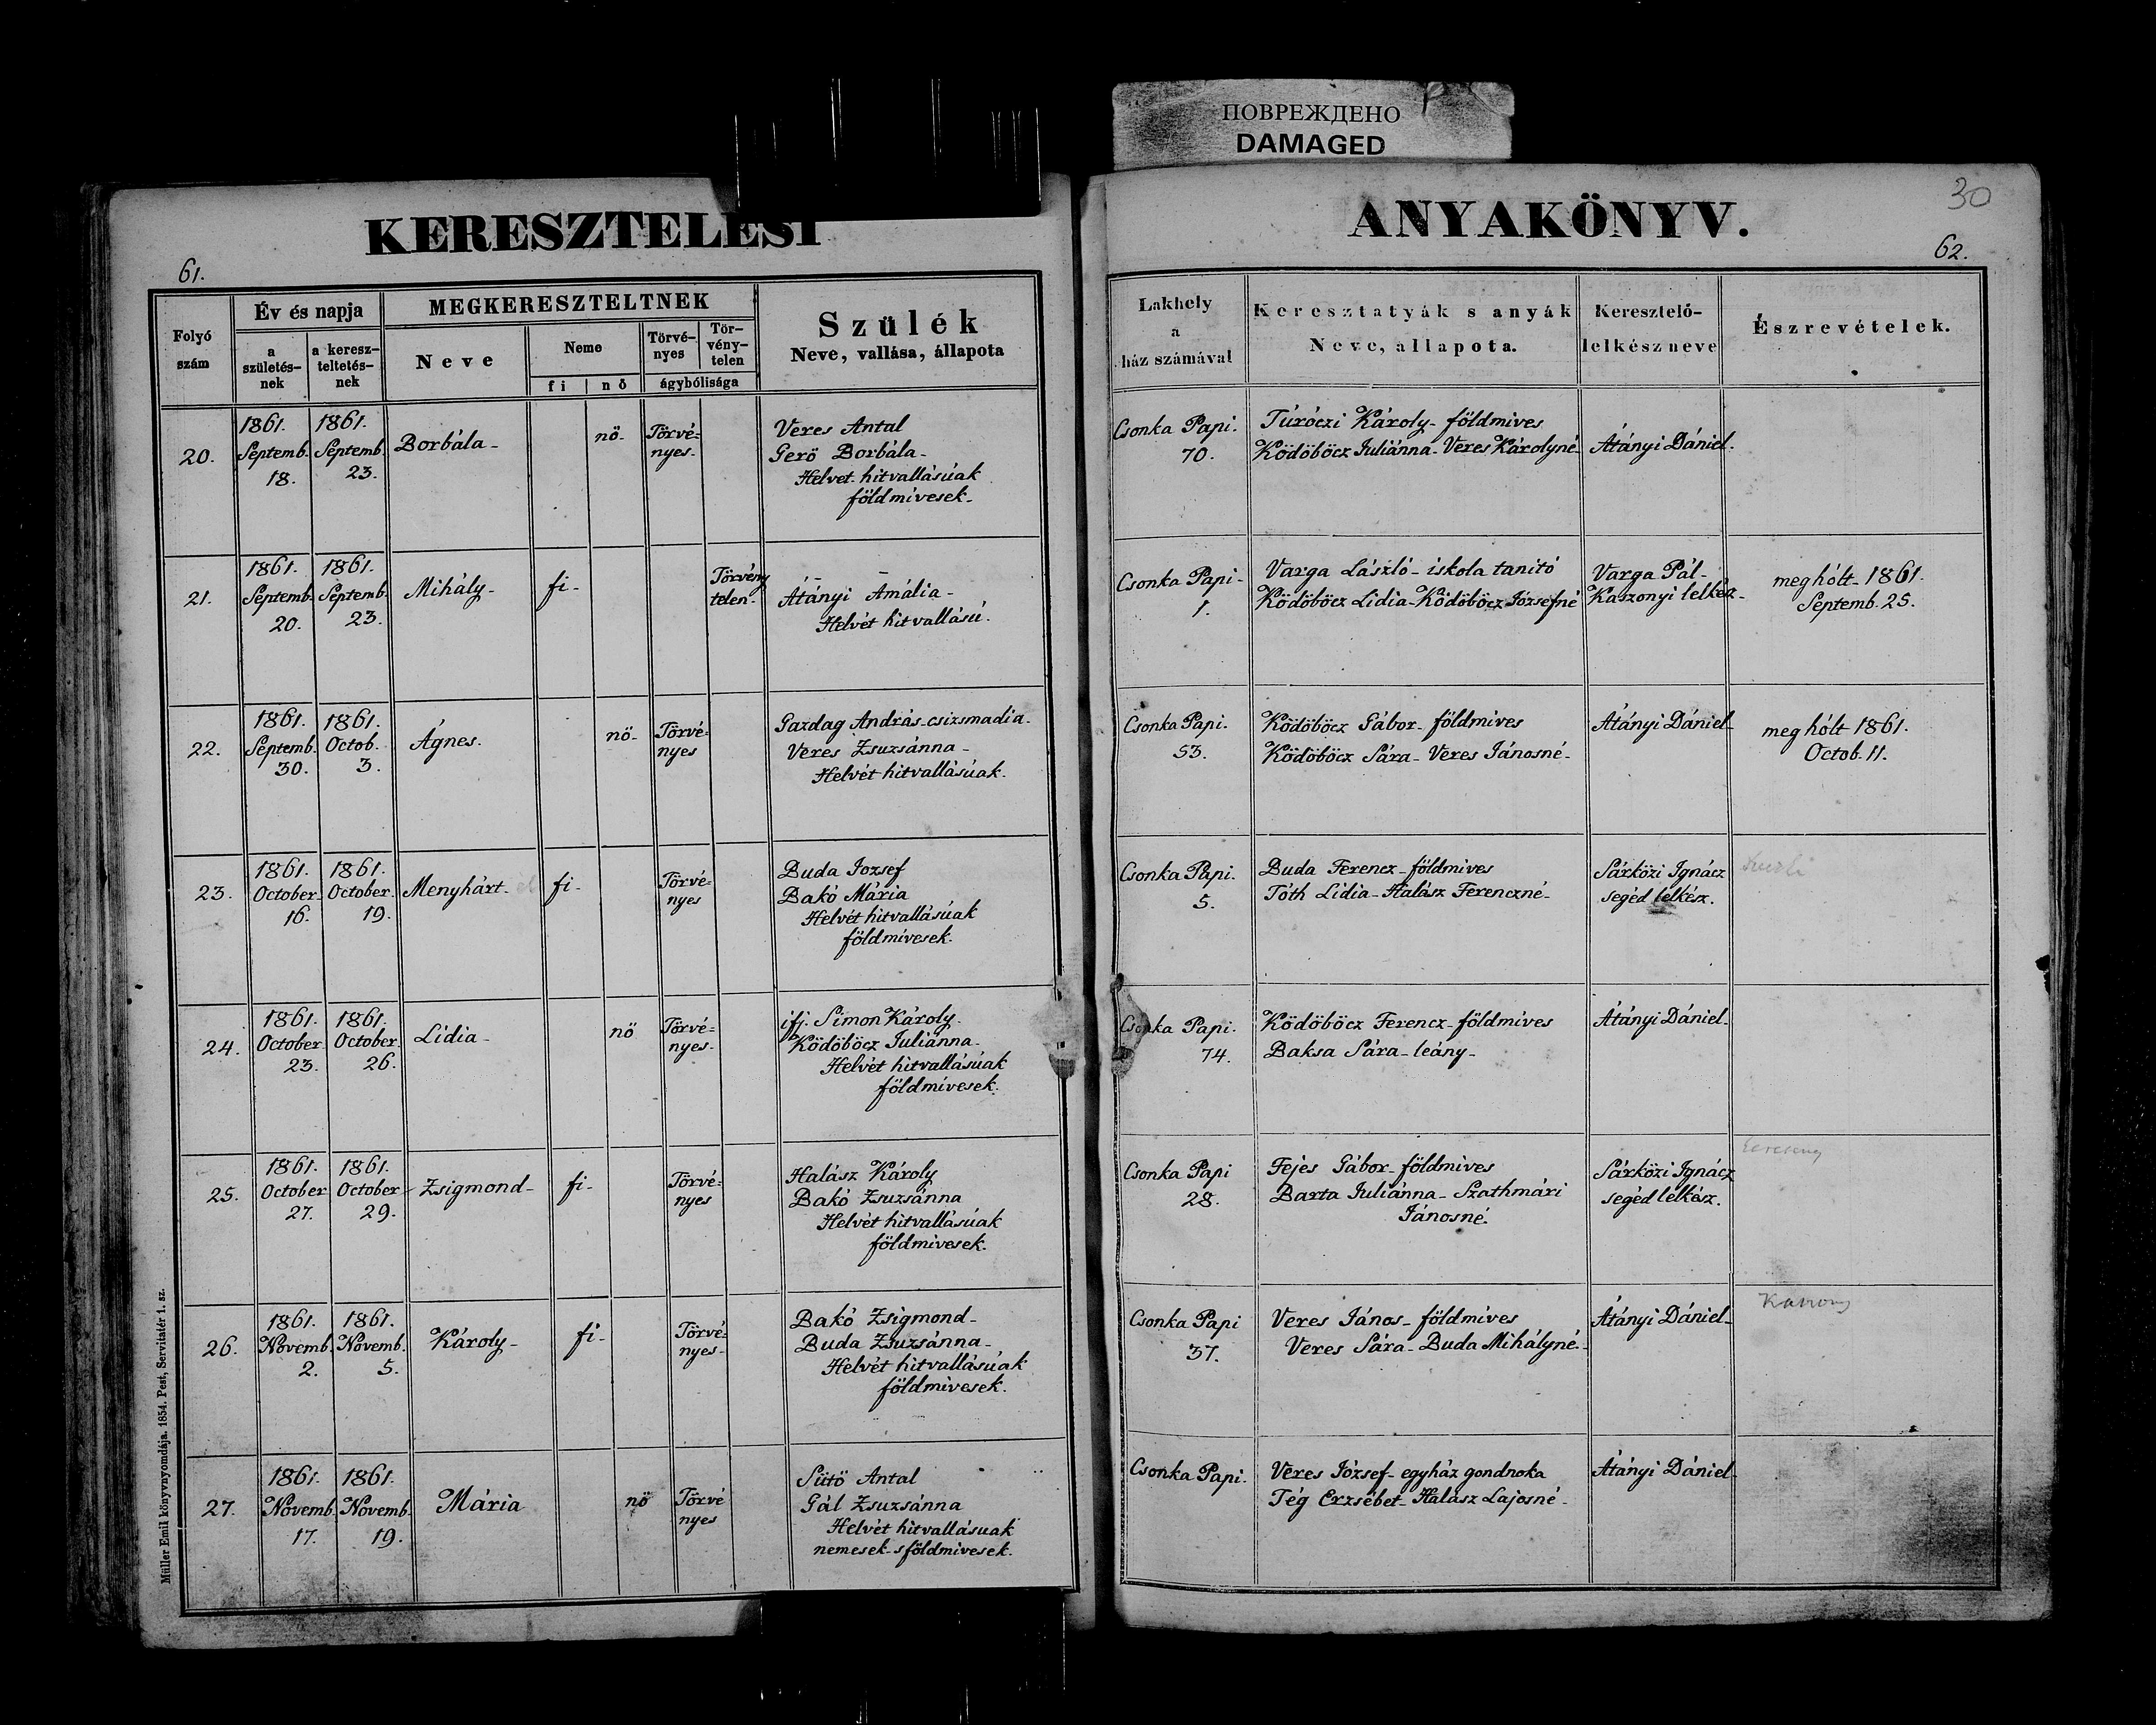 ПОВРЕЖДЕНО
DAMAGED
30
KERESZTELÉSI ANYAKÖNYV.
61.
62.
Folyó szám
Év és napja
a születés-nek
a keresz-teltetés-nek
MEGKERESZTELTNEK
Neve
Neme
fi
nő
Törvé-nyes
Tör-vény-telen
ágybólisága
Szülék
Neve, vallása, állapota
Lakhely
a
ház számával
Keresztatyák s anyák
Neve, állapota.
Keresztelő-
lelkész neve
Észrevételek.
20.
1861. Septemb. 18.
1861. Septemb. 23.
Borbála-
nö-
Törvé=
nyes-
Veres Antal
Gerö Borbála-
Helvet. hitvallásúak
földmívesek-
Csonka Papi.
70.
Túróczi Károly- földmives
Ködöböcz Juliánna- Veres Károlyné-
Átányi Dániel.
21.
1861. Septemb. 20.
1861. Septemb. 23.
Mihály-
fi-
Törvény
telen-
Átányi Amália-
Helvét hitvallású.
Csonka Papi-
1.
Varga László- iskola tanitó
Ködöböcz Lidia- Ködöböcz Józsefné
Varga Pál-
Kaszonyi lelkész-
meghólt- 1861.
Septemb. 25.
22.
1861. Septemb. 30.
1861. Octob. 3.
Ágnes.
nö-
Törvé=
nyes
Gazdag András. csizsmadia.
Veres Zsuzsánna-
Helvét hitvallásúak.
Csonka Papi.
53.
Ködöböcz Gábor- földmives
Ködöböcz Sára- Veres Jánosné-
Átányi Dániel-
meghólt 1861.
Octob. 11.
23.
1861. October. 16.
1861. October. 19.
Menyhárt-
fi-
Törvé=
nyes
Buda Jozsef
Bakó Mária
Helvét hitvallásúak
földmívesek.
Csonka Papi.
5.
Buda Ferencz- földmives
Tóth Lidia- Halász Ferenczné-
Sárközi Ignácz
segéd lelkész.
24.
1861. October. 23.
1861. October. 26.
Lidia-
nö
Törvé=
nyes-
ifj. Simon Károly-
Ködöböcz Juliánna-
Helvét hitvallásúak
földmívesek.
Csonka Papi.
74.
Ködöböcz Ferencz- földmíves
Baksa Sára- leány-
Átányi Dániel-
25.
1861. October 27.
1861. October 29.
Zsigmond-
fi-
Törvé=
nyes
Halász Károly
Bakó Zsuzsánna
Helvét hitvallásúak
földmívesek.
Csonka Papi
28.
Fejes Gábor- földmives
Barta Juliánna- Szathmári
Jánosné-
Sárközi Ignácz
segéd lelkész.
26.
1861. Novemb. 2.
1861. Novemb. 5.
Károly-
fi-
Törvé=
nyes-
Bakó Zsigmond-
Buda Zsuzsánna-
Helvét hitvallásúak
földmívesek.
Csonka Papi
37.
Veres János- földmíves
Veres Sára- Buda Mihályné-
Átányi Dániel-
27.
1861. Novemb. 17.
1861. Novemb. 19.
Mária
nö
Törvé
nyes
Sütö Antal
Gál Zsuzsánna
Helvét hitvallásuak
nemesek- s földmivesek.
Csonka Papi.
Veres József- egyház gondnoka
Tég Erzsébet- Halász Lajosné-
Átányi Dániel-
Müller Emil könyvnyomdája. 1854. Pest, Servitatér 1. sz.